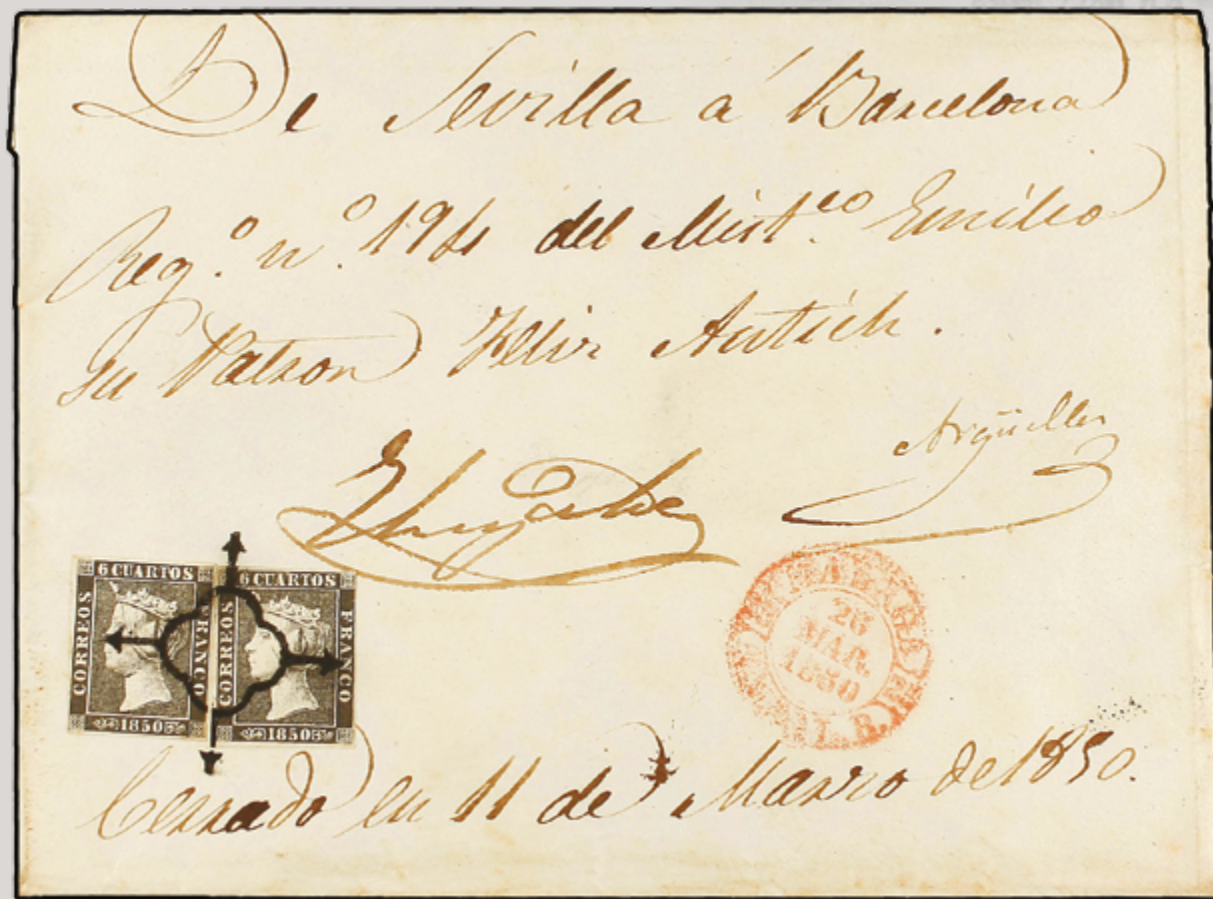 De Sevilla á Barcelona
Reg.º n.º 194 del Mist.co Emilio
su Patron Felix Antich.
Argüelles
6 CUARTOS
CORREOS
FRANCO
1850
6 CUARTOS
CORREOS
FRANCO
1850
26
MAR.
1850
Cerrado en 11 de Marzo de 1850.